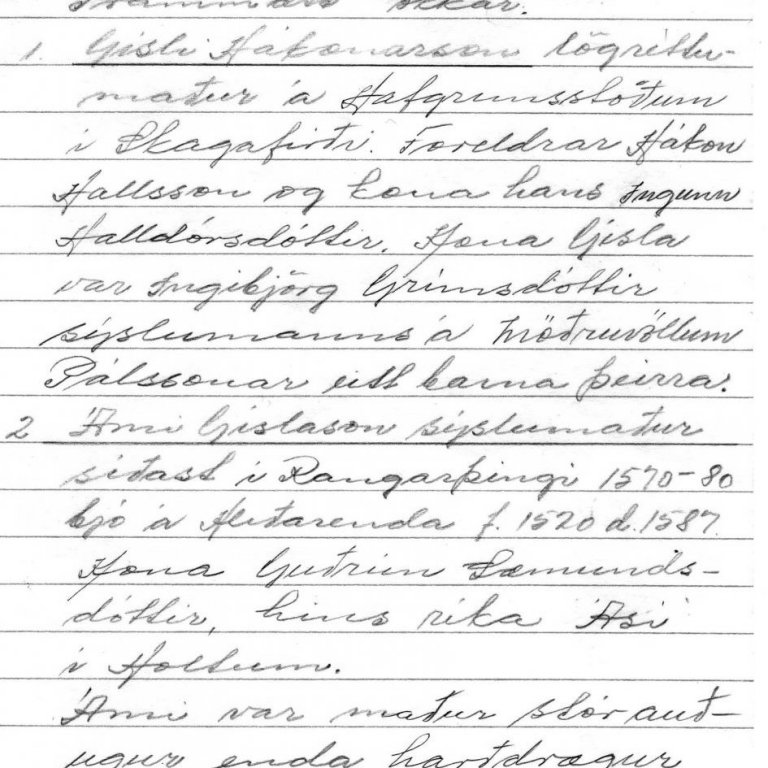 okkar.
1. Gísli Hákonarson lögréttu-
maður á Hafgrímsstöðum
í Skagafirði. Foreldrar Hákon
Hallsson og kona hans Ingunn
Halldórsdóttir. Kona Gísla
var Ingibjörg Grímsdóttir
sýslumanns á Möðruvöllum
Pálssonar eitt barna þeirra.
2 Árni Gíslason sýslumaður
síðast í Rangárþingi 1570-80
bjó á Hlíðarenda f. 1520 d. 1587.
Kona Guðrún Sæmunds-
dóttir, hins ríka Ási
í Holtum.
Árni var maður stórauð-
ugur enda harðdrægur